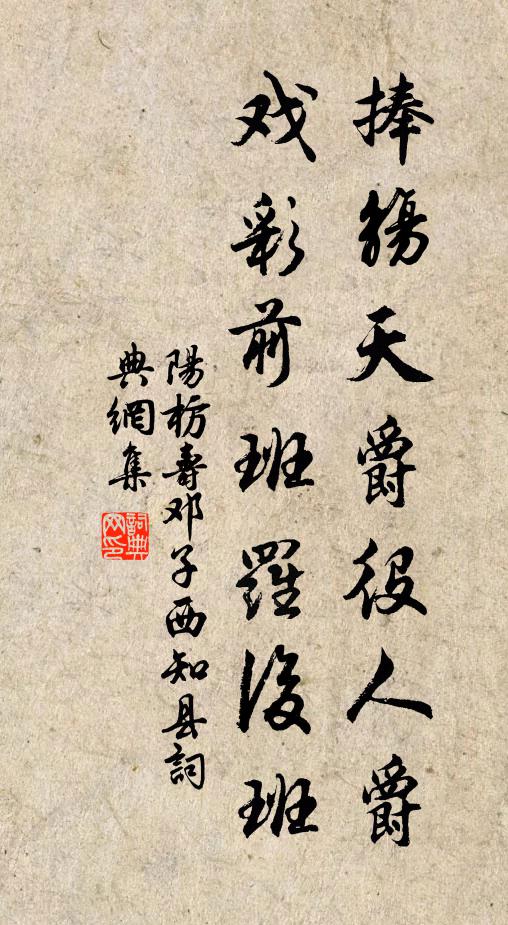 捧觴天爵役人爵
戏彩前班羅後班
陽枋壽邓子西知县詞
典網集
詞典网印